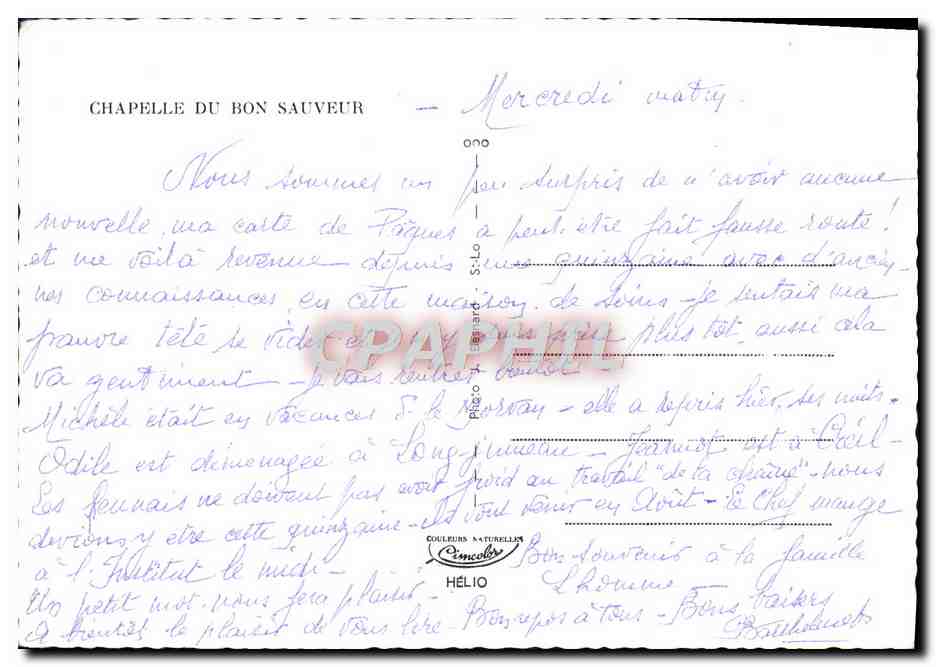 CHAPELLE DU BON SAUVEUR
— Mercredi matin.
Nous sommes un peu surpris de n'avoir aucune
nouvelle, ma carte de Pâques a peut être fait fausse route!
et me voilà revenue depuis une quinzaine avec d'ancien-
nes connaissances en cette maison de soins - je sentais ma
pauvre tête se vider plus tôt, aussi cela
va gentiment - je vais rentrer bientôt
Michèle était en vacances ds le Morvan - elle a repris hier, ses nuits.
Odile est déménagée à Longjumeau - Jeannot est à Créil -
Les ne doivent pas avoir froid au travail "de la chaîne" - nous
devions y être cette quinzaine - ils vont venir en Août - le Chef mange
à l'Institut le midi -
Bon souvenir à la famille
Lhomme -
Un petit mot nous fera plaisir -
A bientôt le plaisir de vous lire - Bon repos à tous - Bons baisers
Photo J. Besnard St-Lo
COULEURS NATURELLES
Cimcolor
HÉLIO
CPAPHIL